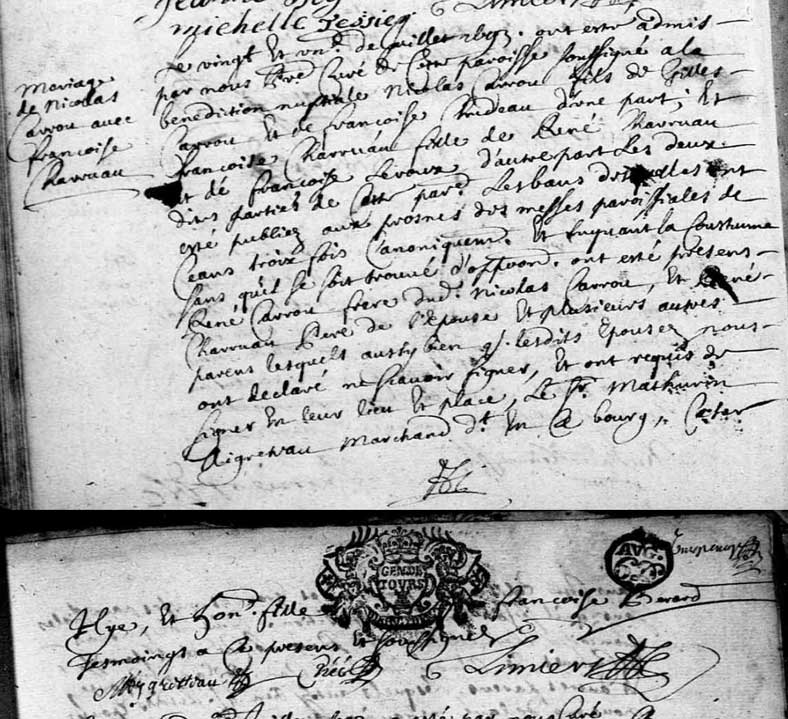 michelle Jessieq Limiers
Mariage
de Nicolas
Carrou avec
francoise
Charruau
Le vingt et un.e de Juillet ont esté admis
par nous Pbre Curé de Cette paroisse soussigné a la
benediction nuptiale Nicolas Carrou fils de Gilles
Carrou Et de francoise Trideau d'une part ; Et
francoise Charruau fille de René Charruau
et de francoise Leroux d'autre part Les deux
dites parties de Cette par.e Les bans desquelles ont
esté publiez aux prosnes des messes paroissiales de
Ceans trois fois Canoniquem.t Et Suyuant la Coustume
sans qu'il se soit trouué d'oppõon. ont esté présens
René Carrou frere dud.t Nicolas Carrou, Et René
Charruau Pere de l'Epouse Et plusieurs autres
parens lesquels aussy bien q. lesdits Epousez nous
ont declaré ne scavoir signer, Et ont requis de
signer En leur lieu Et place, Le Sr. Mathurin
Aigreteau Marchand d.t En Ce bourg,
GEN.DE
TOURS
AVG.
Et hon. fille francoise Berard
Tesmoings a Ce presens Et soussignez
MAygretteau Limiers